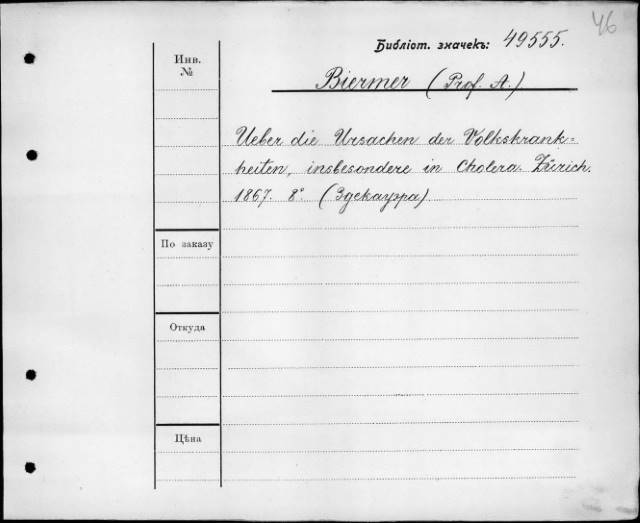 46
Библіот. значекъ: 49555.
Инв.
№
Biermer (Prof. A.)
Ueber die Ursachen der Volkskrank=
heiten, insbesondere in Cholera. Zürich.
1867. 8° (Здекауэра)
По заказу
Откуда
Цѣна